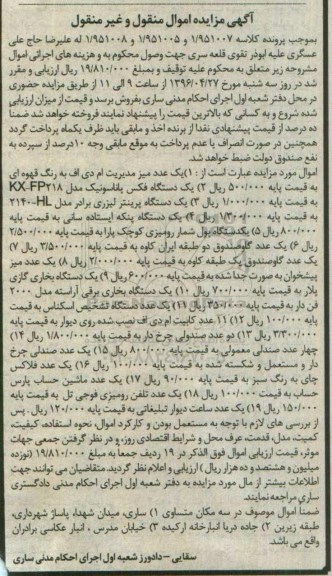 آگهی مزایده اموال منقول و غیر منقول
بموجب پرونده کلاسه ۱/۹۵۱۰۰۷ و ۱/۹۵۱۰۰۵ و ۱/۹۵۱۰۰۸ له علیرضا حاج علی
عسگری علیه ابوذر تقوی قلعه سری جهت وصول محکوم به و هزینه های اجرائی اموال
مشروحه زیر متعلق به محکوم علیه توقیف و بمبلغ ۱۹/۸۱۰/۰۰۰ ریال ارزیابی و مقرر
شد در روز سه شنبه مورخ ۱۳۹۶/۰۴/۲۷ از ساعت ۹ الی ۱۱ از طریق مزایده حضوری
در محل دفتر شعبه اول اجرای احکام مدنی ساری بفروش برسد و قیمت از میزان ارزیابی
شده شروع و به کسانی که بالاترین قیمت را پیشنهاد نمایند فروخته خواهد شد ضمناً
ده درصد از قیمت پیشنهادی نقدا از برنده اخذ و مابقی باید ظرف یکماه پرداخت گردد
همچنین در صورت انصراف یا عدم پرداخت به موقع مابقی وجه ۱۰درصد از سپرده به
نفع صندوق دولت ضبط خواهد شد.
اموال مورد مزایده عبارت است از : ۱)یک عدد میز مدیریت ام دی اف به رنگ قهوه ای
به قیمت پایه ۵۰۰/۰۰۰ ریال ۲) یک دستگاه فکس پاناسونیک مدل KX-FP۲۱۸
به قیمت پایه ۱/۰۰۰/۰۰۰ ریال ۳) یک دستگاه پرینتر لیزری برادر مدل HL-۲۱۴۰
به قیمت پایه ۱/۳۰۰/۰۰۰ ریال ۴) یک دستگاه پنکه ایستاده سانی به قیمت پایه
۸۰۰/۰۰۰ ریال ۵) یک دستگاه پول شمار رومیزی کوچک پارا به قیمت پایه ۲/۵۰۰/۰۰۰
ریال ۶) یک عدد گاوصندوق دو طبقه ایران کاوه به قیمت پایه ۳/۵۰۰/۰۰۰ ریال ۷)
یک عدد گاوصندوق یک طبقه کاوه به قیمت پایه ۲/۰۰۰/۰۰۰ ریال ۸) یک عدد میز
پیشخوان به صورت جدا شده به قیمت پایه ۶۰۰/۰۰۰ ریال ۹) یک دستگاه بخاری گازی
پلار به قیمت پایه ۷۰۰/۰۰۰ ریال ۱۰) یک دستگاه بخاری برقی آراسته مدل ۲۰۰۰
فن دار به قیمت پایه ۴۵۰/۰۰۰ ریال ۱۱) یک عدد دستگاه تشخیص اسکناس به قیمت
پایه ۱۰۰/۰۰۰ ریال ۱۲) ۱۱ عدد کابینت ام دی اف نصب شده روی دیوار به قیمت پایه
۳/۳۰۰/۰۰۰ ریال ۱۳) دو عدد صندلی چرخ دار به قیمت پایه ۱/۸۰۰/۰۰۰ ریال ۱۴)
چهار عدد صندلی معمولی به قیمت پایه ۸۰۰/۰۰۰ ریال ۱۵) یک عدد صندلی چرخ
دار و مستعمل و شکسته شده به قیمت پایه ۱۰۰/۰۰۰ ریال ۱۶) یک عدد فلاکس
چای به رنگ سبز به قیمت پایه ۹۰/۰۰۰ ریال ۱۷) یک عدد ماشین حساب پارس
حساب به قیمت پایه ۱۰۰/۰۰۰ ریال ۱۸) یک عدد تلفن رومیزی فوجی تل به قیمت پایه
۱۵۰/۰۰۰ ریال ۱۹) یک عدد ساعت دیوار تبلیغاتی به قیمت پایه ۱۲۰/۰۰۰ ریال . پس
از بررسی های لازم با توجه به مستعمل بودن و کارکرد اموال، نحوه استفاده، کیفیت،
کمیت، مدل، قدمت، عرف محل و شرایط اقتصادی روزه و در نظر گرفتن جمیع جهات
موثر، قیمت ارزیابی اموال فوق الذکر در ۱۹ ردیف جمعا به مبلغ ۱۹/۸۱۰/۰۰۰ (نوزده
میلیون و هشتصد و ده هزار ریال ) ارزیابی و اعلام نظر گردید. متقاضیان می توانند جهت
اطلاعات بیشتر از مال مورد مزایده به دفتر شعبه اول اجرای احکام مدنی دادگستری
ساری مراجعه نمایند.
ضمناً اموال موصوف در سه مکان متساوی ۱) ساری، میدان شهدا، پاساژ شهرداری،
طبقه زیرین ۲) جاده دریا انبارخانه ارکیده ۳) خیابان مدرس ، انبار عکاسی برادران
واقع می باشد.
سقایی - دادورز شعبه اول اجرای احکام مدنی ساری